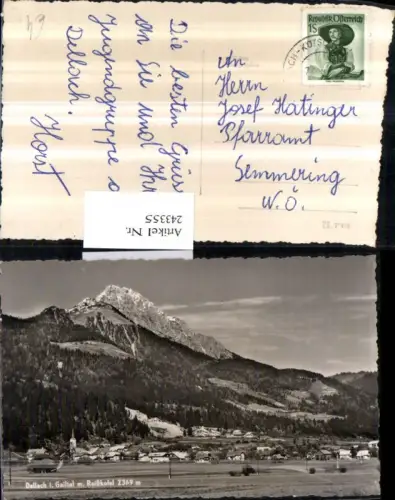 Die besten Grüs
an Sie und Ihr
Jugendgruppe a
Dellach.
Horst
REPUBLIK ÖSTERREICH
1S
An
Herrn
Josef Hatinger
Pfarramt
Semmering
N.Ö.
Artikel Nr.
243355
Dellach i. Gailtal m. Reißkofel 2369 m